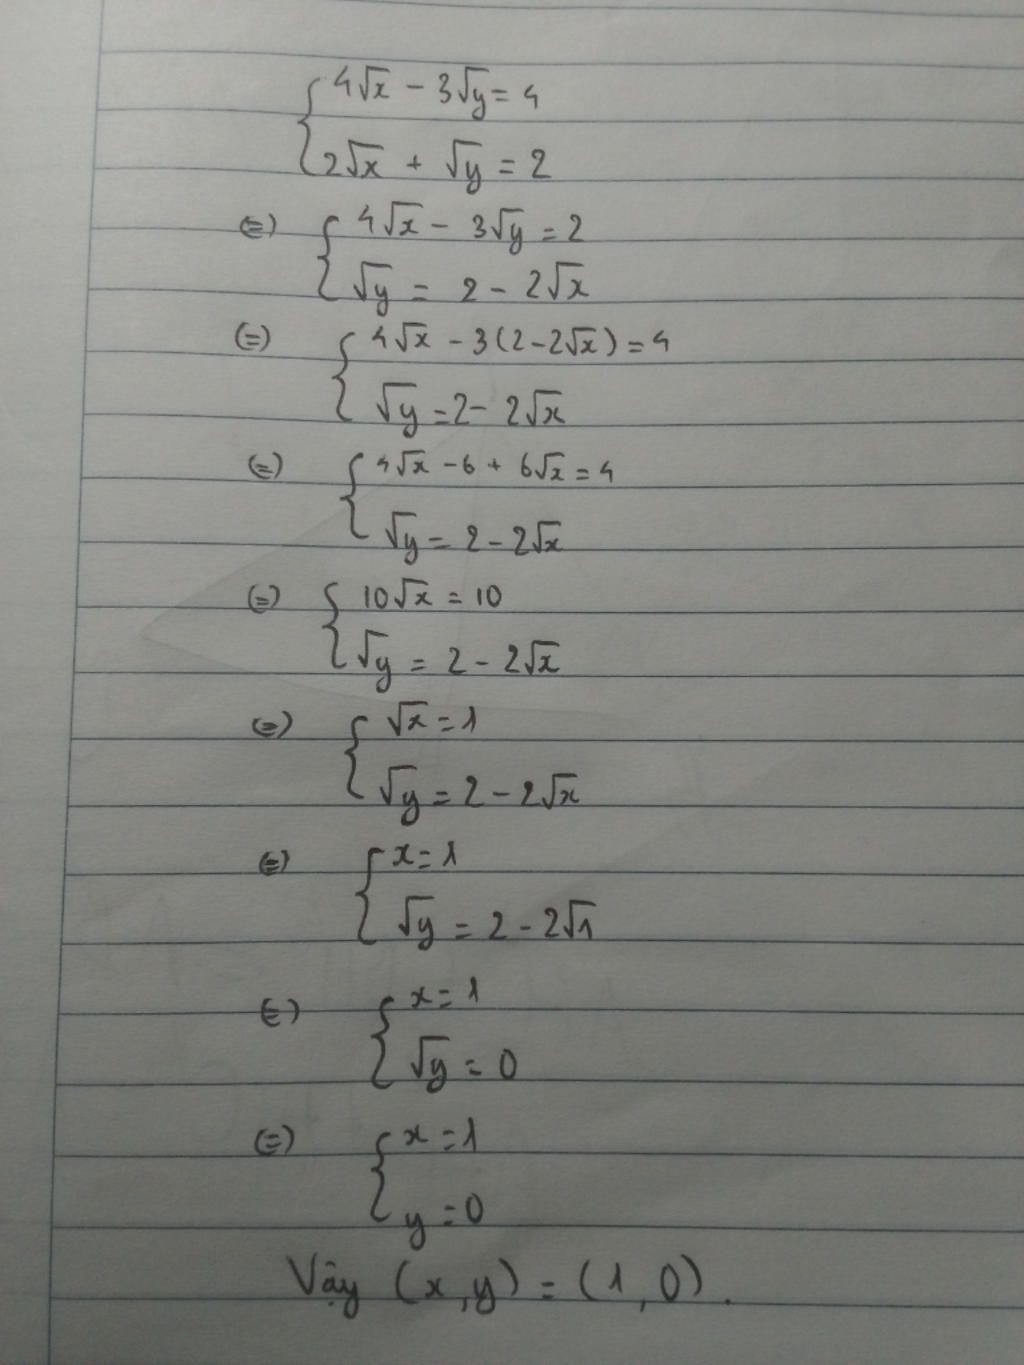 { 4√x - 3√y = 4
2√x + √y = 2
(=) { 4√x - 3√y = 2
√y = 2 - 2√x
(=) { 4√x - 3(2-2√x) = 4
√y = 2 - 2√x
(=) { 4√x - 6 + 6√x = 4
√y = 2 - 2√x
(=) { 10√x = 10
√y = 2 - 2√x
(=) { √x = 1
√y = 2 - 2√x
(=) { x = 1
√y = 2 - 2√1
(=) { x = 1
√y = 0
(=) { x = 1
y = 0
Vậy (x,y) = (1,0).